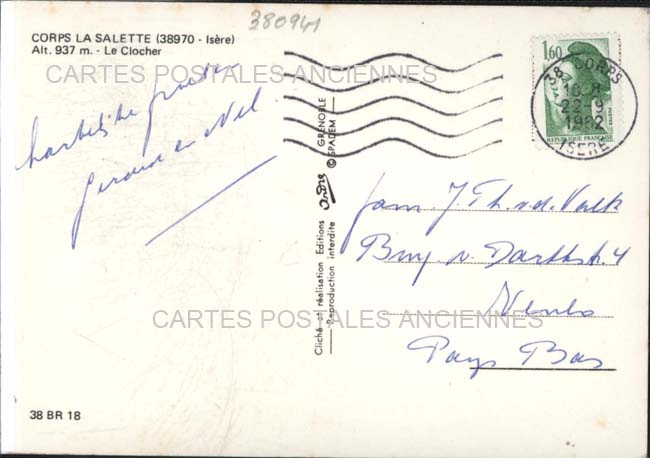 380941
CORPS LA SALETTE (38970 - Isère)
Alt. 937 m. - Le Clocher
CARTES POSTALES ANCIENNES
hartelijke groeten
en Nel
Cliché et réalisation Editions André GRENOBLE
Reproduction interdite © SPADEM
1,60
REPUBLIQUE FRANÇAISE
38 CORPS
18 H
22-9
1982
ISERE
Fam. J. Th. v. d. Valk
Burg. v. 4
CARTES POSTALES ANCIENNES
Pays Bas
38 BR 18